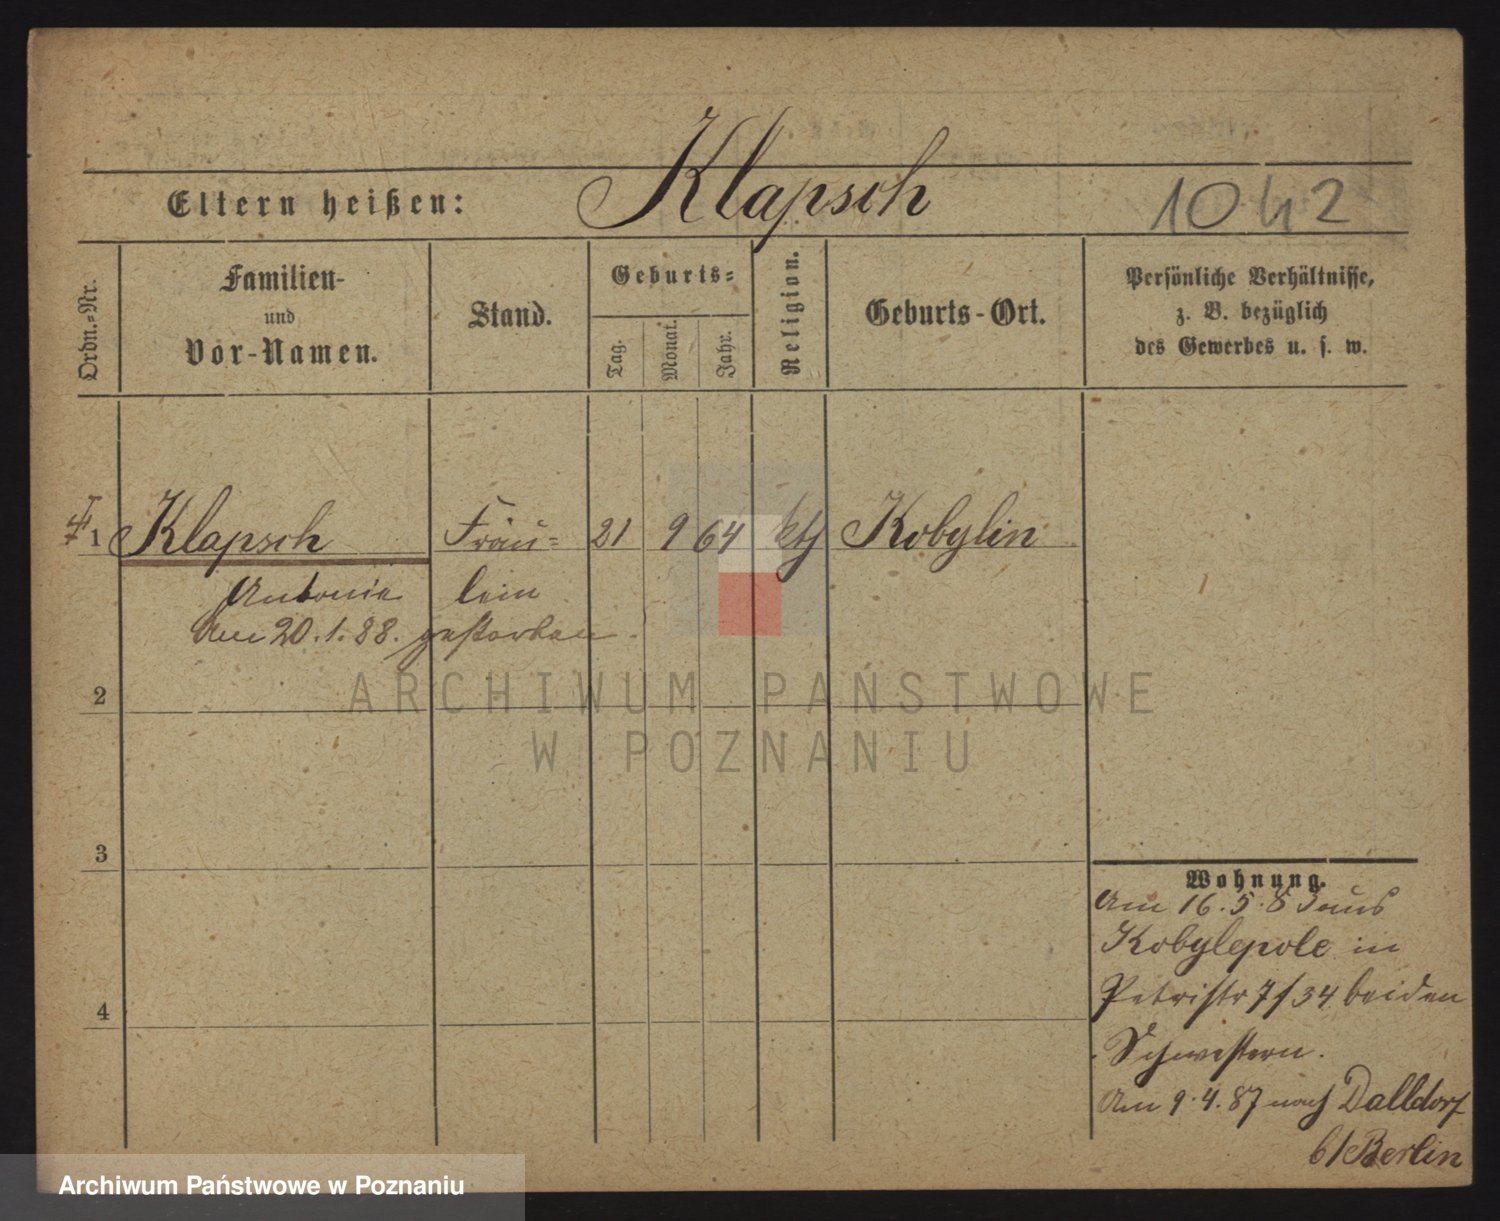 Klapsch
Eltern heißen:
1042
Ordn.-Nr.
Familien-
und
Vor-Namen.
Stand.
Geburts-
Tag.
Monat.
Jahr.
Religion.
Geburts-Ort.
Persönliche Verhältnisse,
z. B. bezüglich
des Gewerbes u. s. w.
1 Klapsch Fräu- 21 9 64 kth Kobylin
Antonie lein
Am 20.1.88. gestorben.
2
3
4
Wohnung.
Am 16.5.8 aus
Kobylepole in
Petristr 7/34 beiden
Schwestern.
Am 9.4.87 nach Dalldorf
b/Berlin
ARCHIWUM PAŃSTWOWE
W POZNANIU
Archiwum Państwowe w Poznaniu